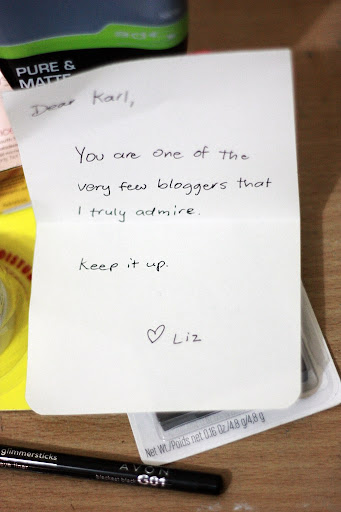 PURE &
MATTE
Dear Karl,
You are one of the
very few bloggers that
I truly admire.
Keep it up.
♡ Liz
Net Wt./Poids net 0.16 Oz./4,8 g/4.8 g
glimmersticks
AVON
blackest black G01